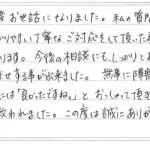 お世話になりました。私の質問
がりやすい丁寧なご対応をして頂いた
ります。今後の相談にも、しっかりと
せする事が出来ました。無事に障害
には「良かったですね。」とおっしゃって頂き
救われました。この度は誠にありが